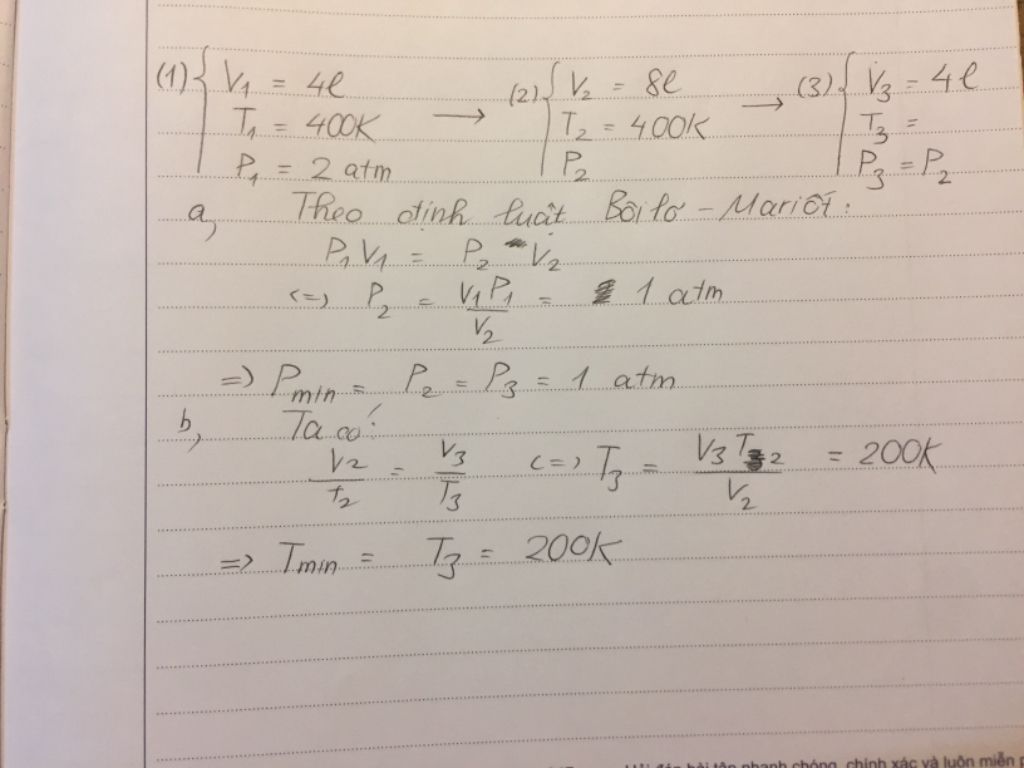 (1) { V₁ = 4l → (2) { V₂ = 8l → (3) { V₃ = 4l
T₁ = 400K T₂ = 400K T₃ =
P₁ = 2 atm P₂ P₃ = P₂
a, Theo định luật Bôilơ - Mariốt:
P₁V₁ = P₂ V₂
<=> P₂ = V₁P₁ / V₂ = 1 atm
=> Pmin = P₂ = P₃ = 1 atm
b, Ta có:
V₂ / t₂ = V₃ / T₃ <=> T₃ = V₃T₂ / V₂ = 200K
=> Tmin = T₃ = 200K
bài tập nhanh chóng, chính xác và luôn miễn